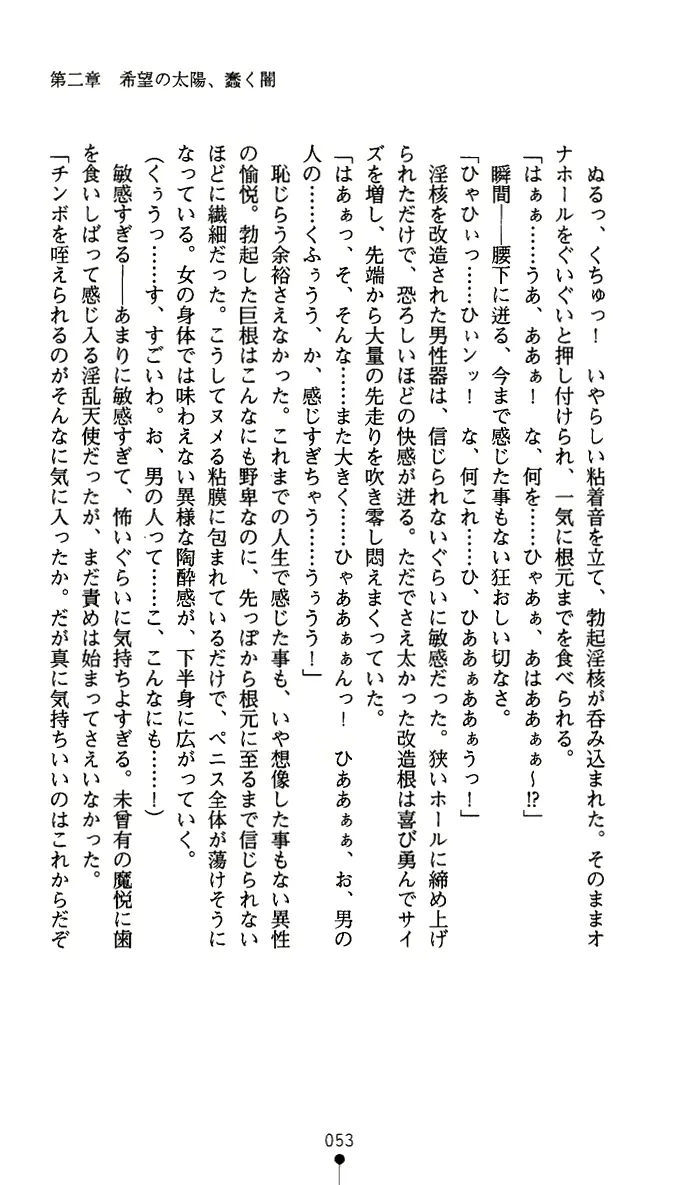 第二章　希望の太陽、蠢く闇
　ぬるっ、くちゅっ！　いやらしい粘着音を立て、勃起淫核が呑み込まれた。そのままオ
ナホールをぐいぐいと押し付けられ、一気に根元までを食べられる。
「はぁぁ……うあ、ああぁ！　な、何を……ひゃあぁ、あはああぁぁ～⁉」
　瞬間――腰下に迸る、今まで感じた事もない狂おしい切なさ。
「ひゃひぃっ……ひぃンッ！　な、何これ……ひ、ひああぁああぁうっ！」
　淫核を改造された男性器は、信じられないぐらいに敏感だった。狭いホールに締め上げ
られただけで、恐ろしいほどの快感が迸る。ただでさえ太かった改造根は喜び勇んでサイ
ズを増し、先端から大量の先走りを吹き零し悶えまくっていた。
「はあぁっ、そ、そんな……また大きく……ひゃああぁぁんっ！　ひああぁぁ、お、男の
人の……くふぅうう、か、感じすぎちゃう……うぅうう！」
　恥じらう余裕さえなかった。これまでの人生で感じた事も、いや想像した事もない異性
の愉悦。勃起した巨根はこんなにも野卑なのに、先っぽから根元に至るまで信じられない
ほどに繊細だった。こうしてヌメる粘膜に包まれているだけで、ペニス全体が蕩けそうに
なっている。女の身体では味わえない異様な陶酔感が、下半身に広がっていく。
（くぅうっ……す、すごいわ。お、男の人って……こ、こんなにも……！）
　敏感すぎる――あまりに敏感すぎて、怖いぐらいに気持ちよすぎる。未曾有の魔悦に歯
を食いしばって感じ入る淫乱天使だったが、まだ責めは始まってさえいなかった。
「チンボを咥えられるのがそんなに気に入ったか。だが真に気持ちいいのはこれからだぞ
053